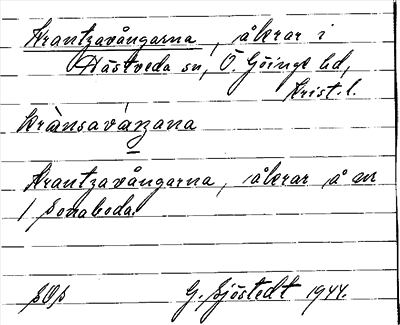 Krantzavångarna, åkrar i
Hästveda sn, Ö. Göinge hd,
Krist. l.
krànsavánana
Krantzavångarna, åkrar å nr
1 Sonaboda.
SOS
G. Sjöstedt 1944.